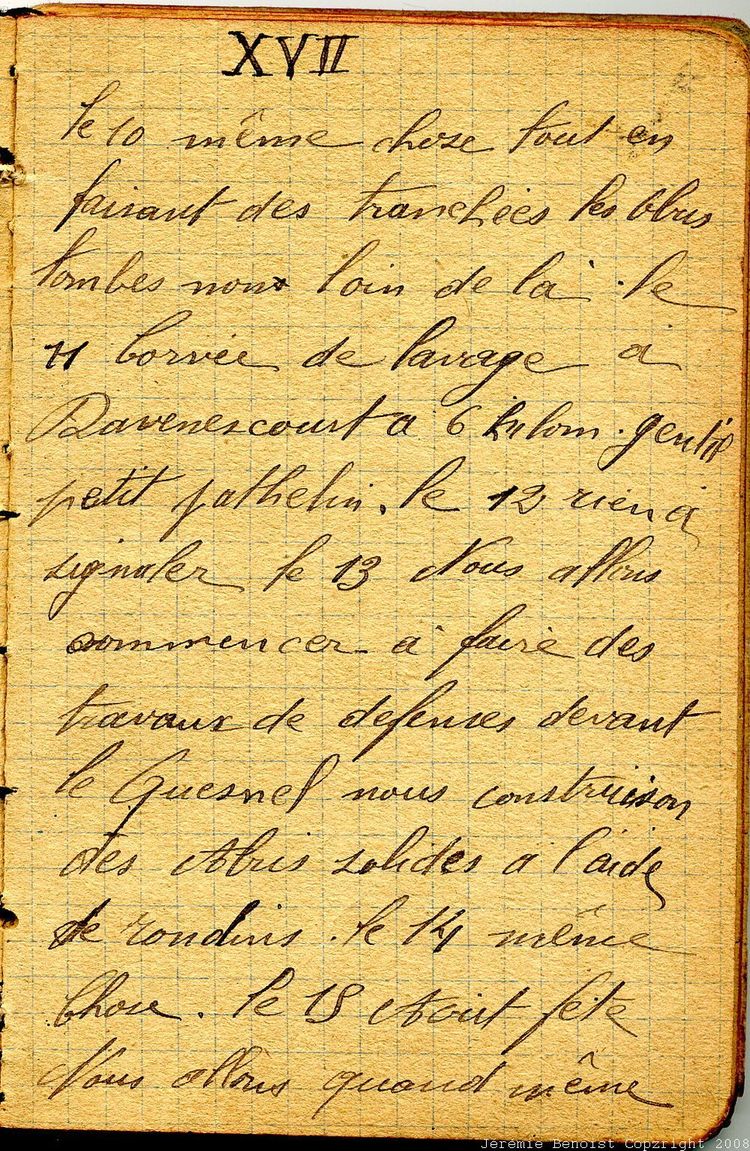 XVII
le 10 même chose tout en
faisant des tranchées les Obus
tombes non loin de là . le
11 Corvée de lavage à
Davenescourt a 6 kilom. gentil
petit pathelin. le 12 rien à
signaler le 13 Nous allons
commencer à faire des
travaux de defenses devant
le Quesnel nous construison
des Abris solides a l'aide
de rondins . le 14 même
Chose . le 15 Aout fête
Nous allons quand même
Jeremie Benoist Copzright 2008